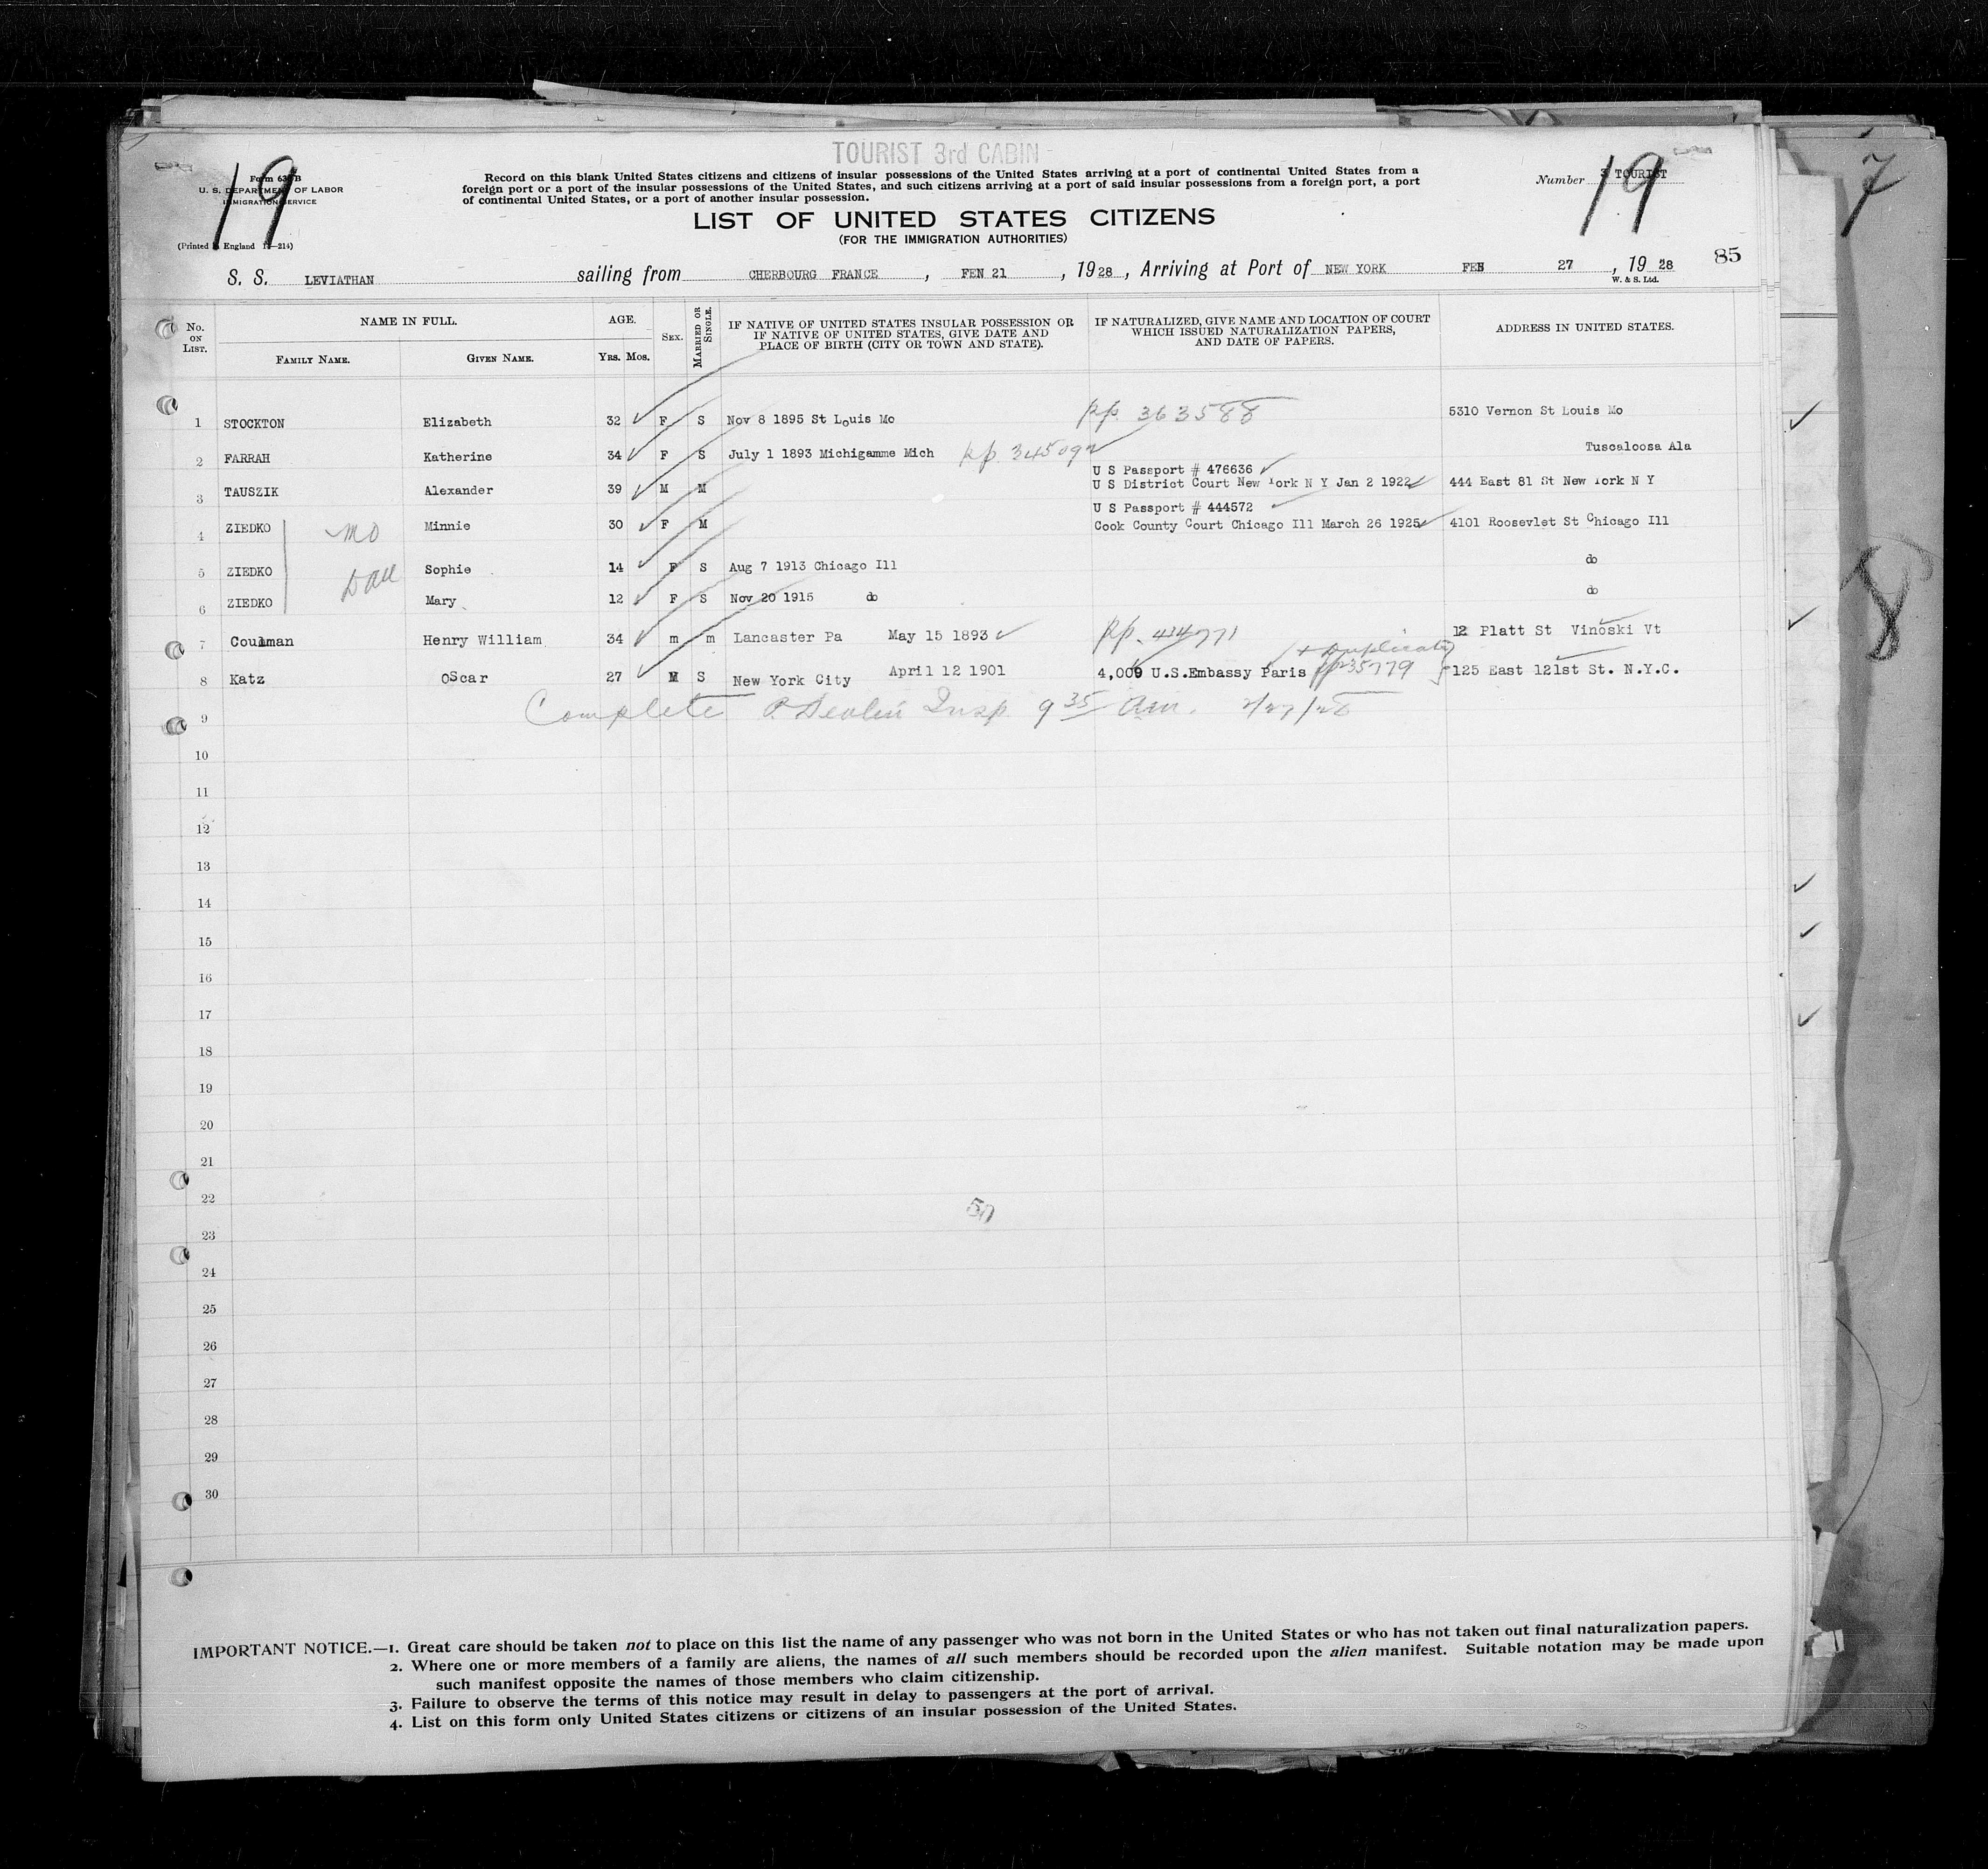 TOURIST 3rd CABIN
19
Form 630 B
U. S. DEPARTMENT OF LABOR
IMMIGRATION SERVICE
(Printed in England 1—214)
Record on this blank United States citizens and citizens of insular possessions of the United States arriving at a port of continental United States from a
foreign port or a port of the insular possessions of the United States, and such citizens arriving at a port of said insular possessions from a foreign port, a port
of continental United States, or a port of another insular possession.
Number 3 TOURIST
19
7
LIST OF UNITED STATES CITIZENS
(FOR THE IMMIGRATION AUTHORITIES)
85
S. S. LEVIATHAN sailing from CHERBOURG FRANCE , FEN 21 , 1928 , Arriving at Port of NEW YORK FEB 27 , 19 28
W. & S. Ltd.
No. ON LIST. NAME IN FULL. FAMILY NAME. GIVEN NAME. AGE. YRS. MOS. SEX. MARRIED OR SINGLE. IF NATIVE OF UNITED STATES INSULAR POSSESSION OR IF NATIVE OF UNITED STATES, GIVE DATE AND PLACE OF BIRTH (CITY OR TOWN AND STATE). IF NATURALIZED, GIVE NAME AND LOCATION OF COURT WHICH ISSUED NATURALIZATION PAPERS, AND DATE OF PAPERS. ADDRESS IN UNITED STATES.
1 STOCKTON Elizabeth 32 F S Nov 8 1895 St Louis Mo pp. 363588 5310 Vernon St Louis Mo
2 FARRAH Katherine 34 F S July 1 1893 Michigamme Mich pp. 345092 Tuscaloosa Ala
U S Passport # 476636
3 TAUSZIK Alexander 39 M M U S District Court New York N Y Jan 2 1922 444 East 81 St New York N Y
U S Passport # 444572
4 ZIEDKO MO Minnie 30 F M Cook County Court Chicago Ill March 26 1925 4101 Roosevlet St Chicago Ill
5 ZIEDKO Dau Sophie 14 F S Aug 7 1913 Chicago Ill do
6 ZIEDKO Mary 12 F S Nov 20 1915 do do
7 Coulman Henry William 34 m m Lancaster Pa May 15 1893 pp. 434771 12 Platt St Vinoski Vt
+ Duplicate
8 Katz OScar 27 M S New York City April 12 1901 4,009 U.S.Embassy Paris pp 35779 125 East 121st St. N.Y.C.
Complete P. Devlin Insp. 9 35 Am. 2/27/28
9
10
11
12
13
14
15
16
17
18
19
20
21
22
23
24
25
26
27
28
29
30
50
8
IMPORTANT NOTICE.—1. Great care should be taken not to place on this list the name of any passenger who was not born in the United States or who has not taken out final naturalization papers.
2. Where one or more members of a family are aliens, the names of all such members should be recorded upon the alien manifest. Suitable notation may be made upon
such manifest opposite the names of those members who claim citizenship.
3. Failure to observe the terms of this notice may result in delay to passengers at the port of arrival.
4. List on this form only United States citizens or citizens of an insular possession of the United States.